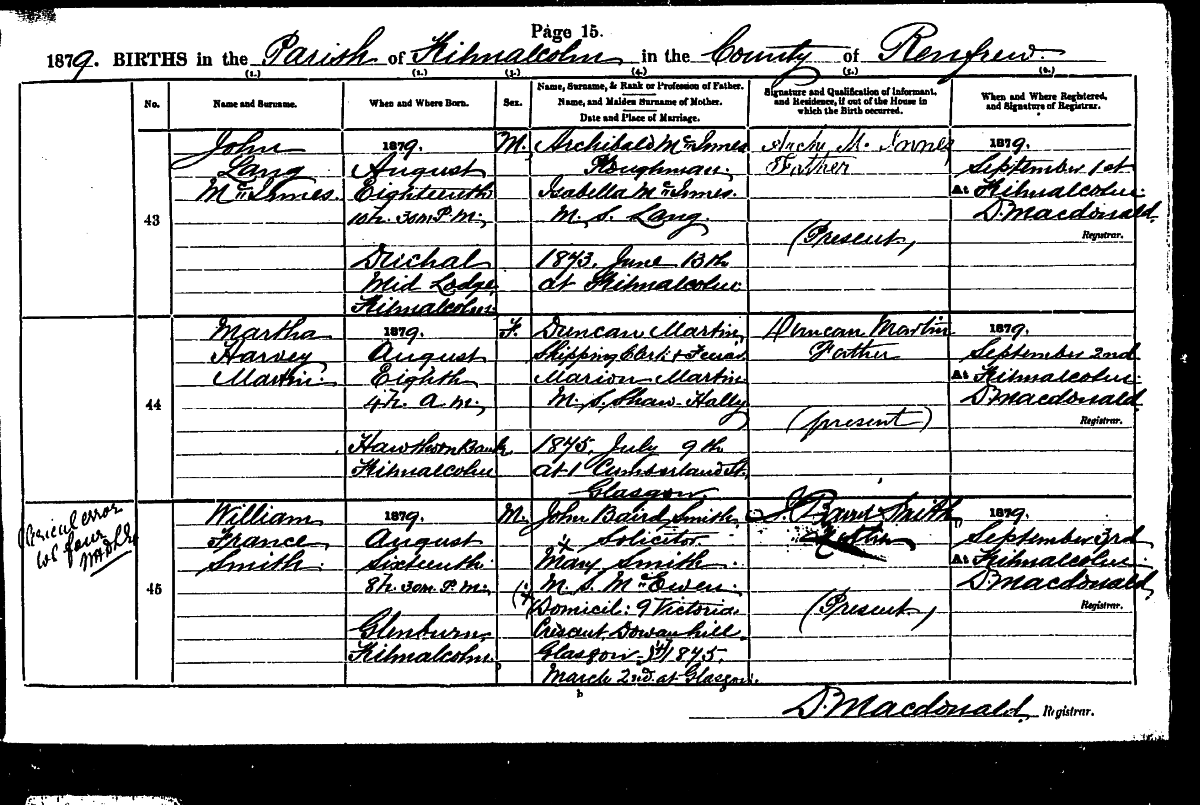 Page 15.
1879. BIRTHS in the Parish of Kilmalcolm in the County of Renfrew.
(1.) (2.) (3.) (4.) (5.) (6.)
No.
Name and Surname.
When and Where Born.
Sex.
Name, Surname, & Rank or Profession of Father.
Name, and Maiden Surname of Mother.
Date and Place of Marriage.
Signature and Qualification of Informant,
and Residence, if out of the House in
which the Birth occurred.
When and Where Registered,
and Signature of Registrar.
43
John
Lang
McInnes.
1879.
August
Eighteenth
10h. 30m P.M.
Duchal
Mid Lodge
Kilmalcolm
M.
Archibald McInnes
Ploughman
Isabella McInnes.
M. S. Lang.
1873. June 13th
at Kilmalcolm
Archd McInnes
Father
(Present)
1879.
September 1st
At Kilmalcolm.
D. Macdonald.
Registrar.
44
Martha
Harvey
Martin.
1879.
August
Eighth
4h. A.M.
Hawthorn Bank
Kilmalcolm
F.
Duncan Martin,
Shipping Clerk &
Marion Martin
M. S. Shaw-Hally
1875. July 9th
at 1 Cumberland St.
Glasgow.
Duncan Martin
Father
(present)
1879.
September 2nd
At Kilmalcolm.
D. Macdonald.
Registrar.
error
four
45
William
France
Smith.
1879.
August
Sixteenth.
8h. 30m. P.M.
Glenburn
Kilmalcolm.
M.
John Baird Smith
Solicitor.
Mary Smith
M. S. McEwen.
Domicil: 9 Victoria
Crescent, Dowanhill
Glasgow 1875.
March 2nd. at Glasgow.
J. Baird Smith
Father
(Present)
1879.
September 3rd
At Kilmalcolm.
D. Macdonald
Registrar.
b
D. Macdonald, Registrar.